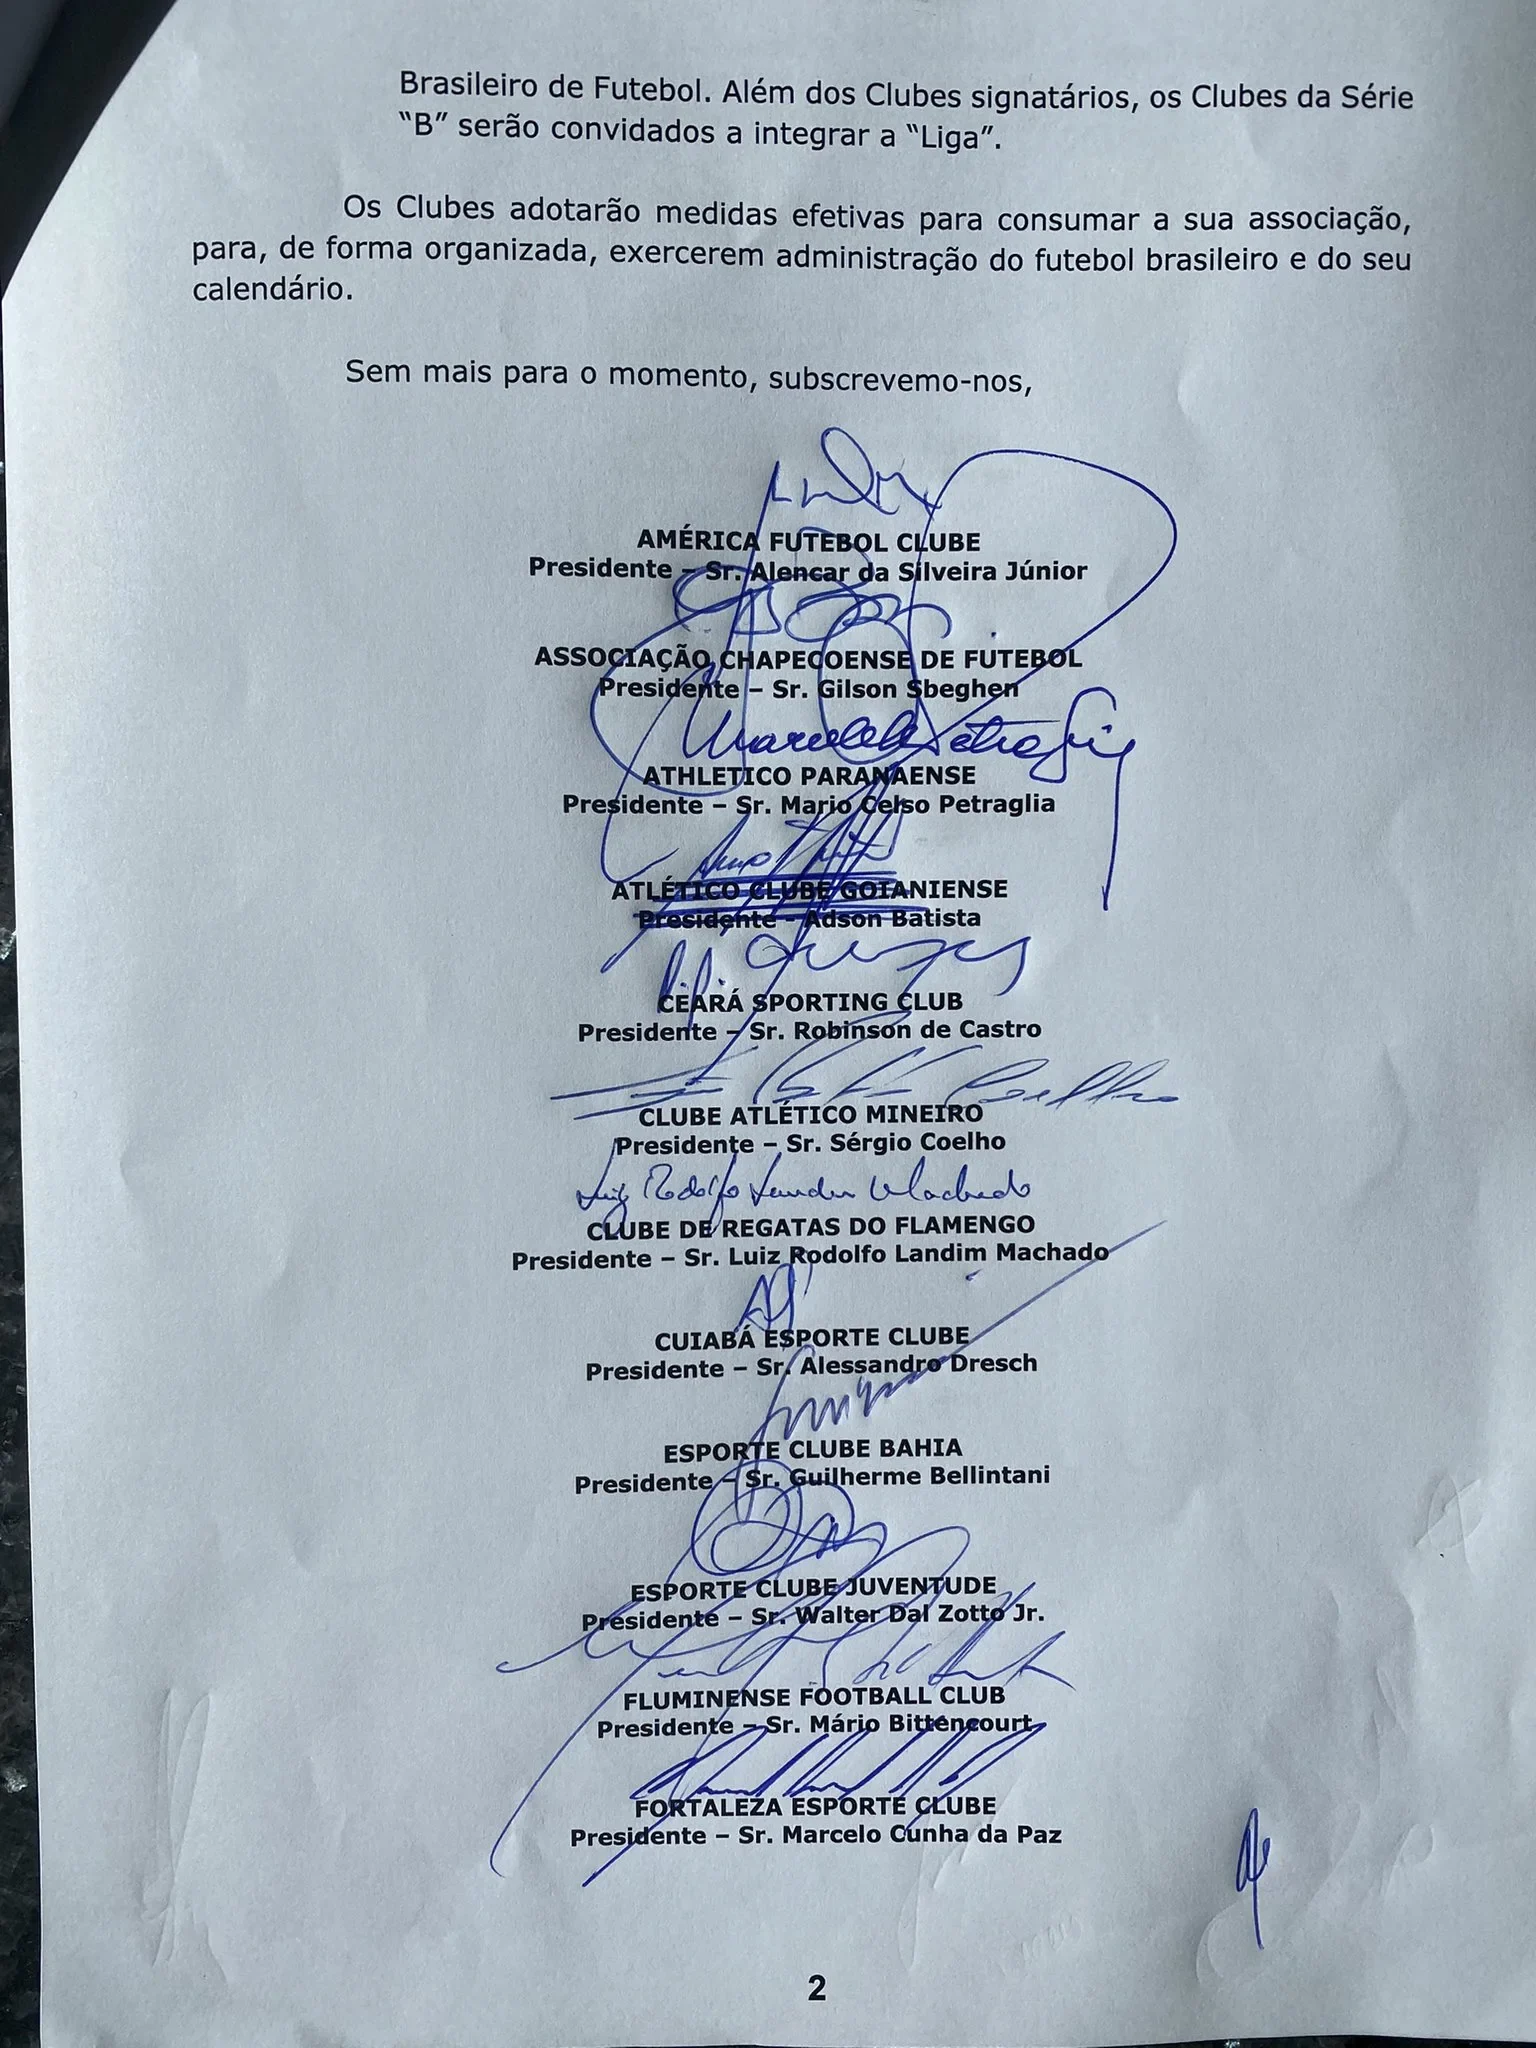 Brasileiro de Futebol. Além dos Clubes signatários, os Clubes da Série
“B” serão convidados a integrar a “Liga”.
Os Clubes adotarão medidas efetivas para consumar a sua associação,
para, de forma organizada, exercerem administração do futebol brasileiro e do seu
calendário.
Sem mais para o momento, subscrevemo-nos,
AMÉRICA FUTEBOL CLUBE
Presidente – Sr. Alencar da Silveira Júnior
ASSOCIAÇÃO CHAPECOENSE DE FUTEBOL
Presidente – Sr. Gilson Sbeghen
ATHLETICO PARANAENSE
Presidente – Sr. Mario Celso Petraglia
ATLÉTICO CLUBE GOIANIENSE
Presidente - Adson Batista
CEARÁ SPORTING CLUB
Presidente – Sr. Robinson de Castro
Coelho
CLUBE ATLÉTICO MINEIRO
Presidente – Sr. Sérgio Coelho
Luiz Rodolfo Landim Machado
CLUBE DE REGATAS DO FLAMENGO
Presidente – Sr. Luiz Rodolfo Landim Machado
CUIABÁ ESPORTE CLUBE
Presidente – Sr. Alessandro Dresch
ESPORTE CLUBE BAHIA
Presidente – Sr. Guilherme Bellintani
ESPORTE CLUBE JUVENTUDE
Presidente – Sr. Walter Dal Zotto Jr.
FLUMINENSE FOOTBALL CLUB
Presidente – Sr. Mário Bittencourt
FORTALEZA ESPORTE CLUBE
Presidente – Sr. Marcelo Cunha da Paz
2